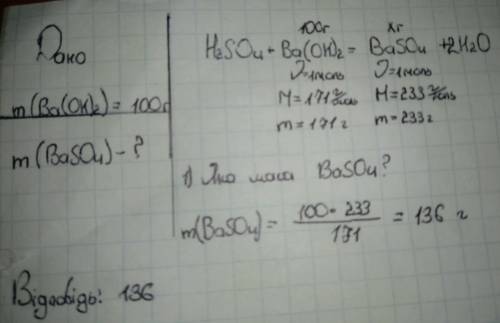 Дано
m(Ba(OH)₂) = 100г
m(BaSO₄) - ?
100г хг
H₂SO₄ + Ba(OH)₂ = BaSO₄ + 2H₂O
ν=1моль ν=1моль
M=171 г/моль M=233 г/моль
m=171 г m=233г
1) Яка маса BaSO₄?
m(BaSO₄) = 100 · 233 / 171 = 136 г
Відповідь: 136